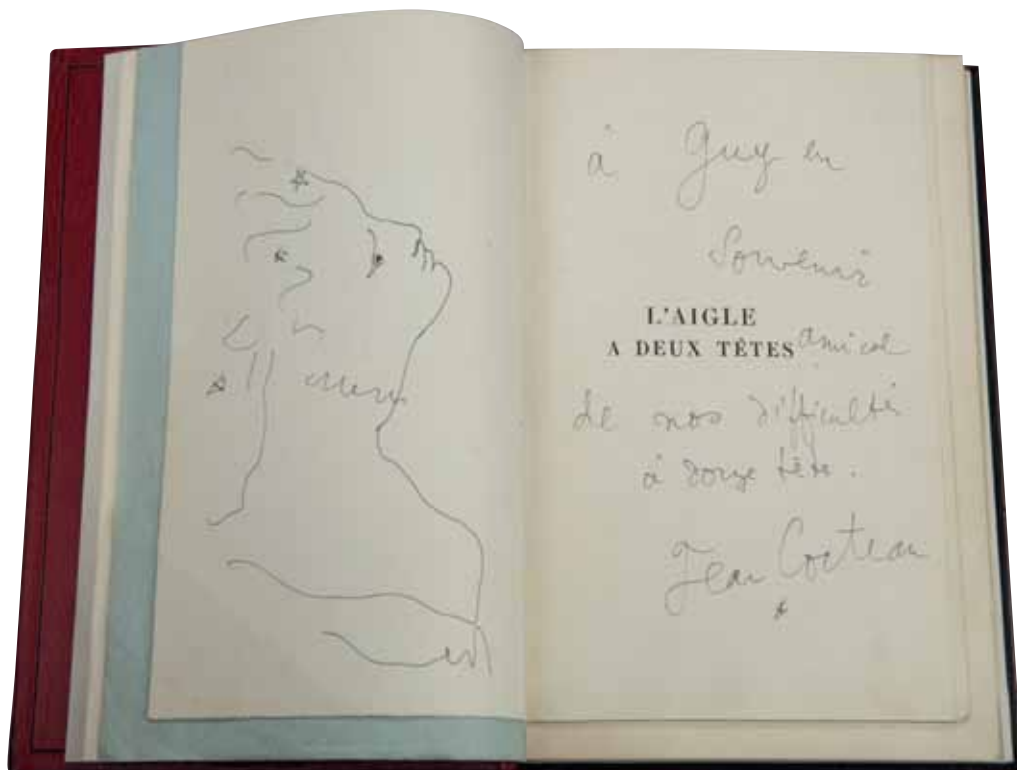 à Guy en
Souvenir
L'AIGLE
A DEUX TÊTES amical
de nos difficultés
à douze têtes.
Jean Cocteau